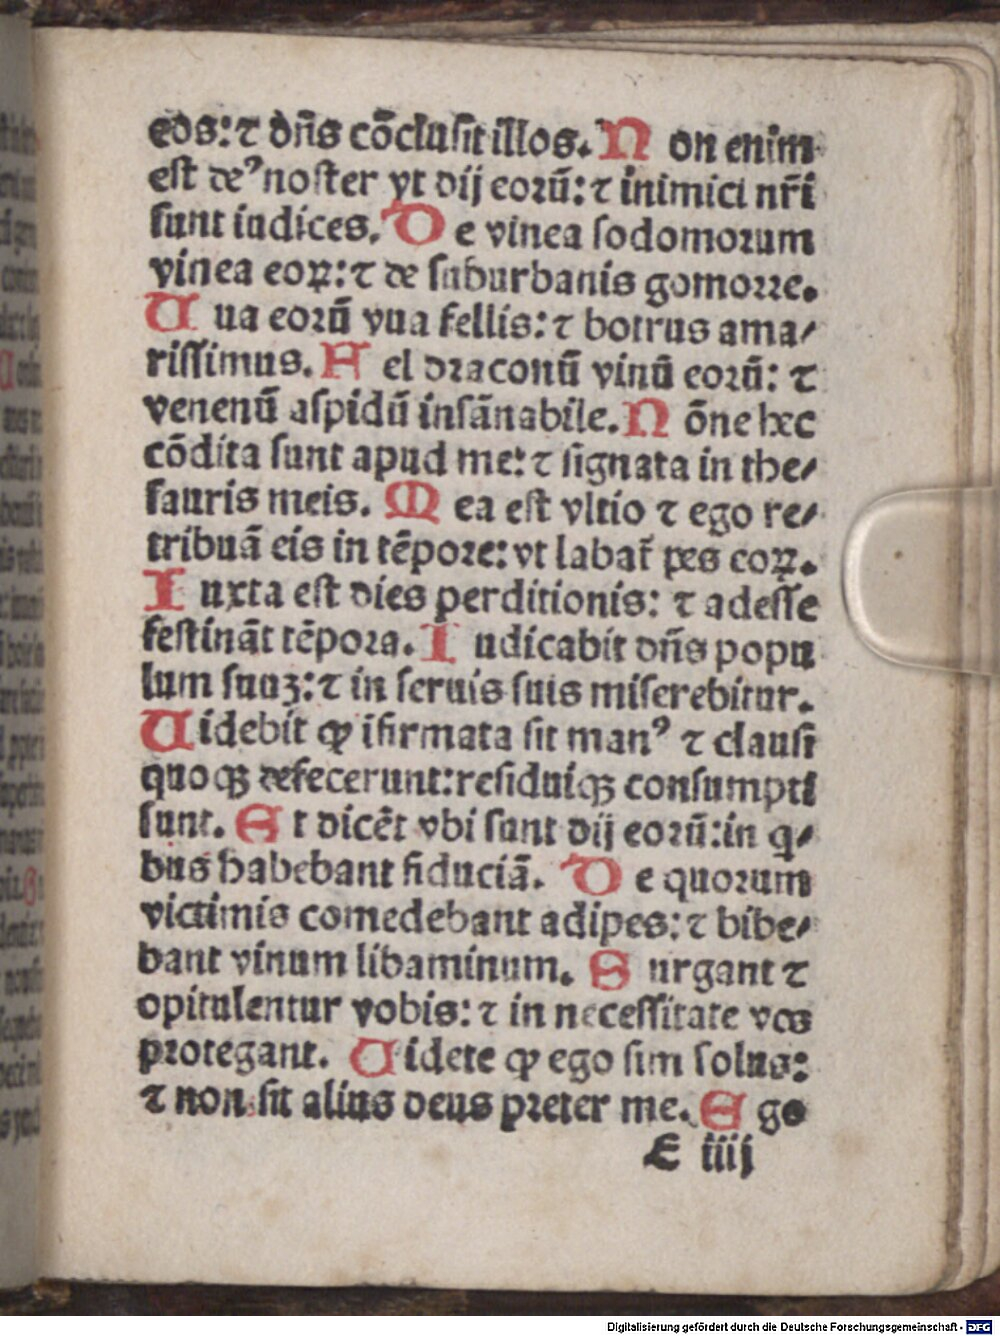 eos: ⁊ dñs cõclusit illos. N on enim
est deꝰ noster vt dij eorũ: ⁊ inimici nr̃i
sunt iudices. D e vinea sodomorum
vinea eoꝝ: ⁊ de suburbanis gomorre.
U ua eorũ vua fellis: ⁊ botrus ama⸗
rissimus. F el draconũ vinũ eorũ: ⁊
venenũ aspidũ insãnabile. N õne hec
cõdita sunt apud me: ⁊ signata in the⸗
sauris meis. M ea est vltio ⁊ ego re⸗
tribuã eis in tẽpore: vt labat̃ pes eoꝝ.
I uxta est dies perditionis: ⁊ adesse
festinãt tẽpora. I udicabit dñs popu
lum suuꝫ: ⁊ in seruis suis miserebitur.
Uidebit ꝙ ifirmata sit manꝰ ⁊ clausi
quoqꝫ defecerunt: residuiqꝫ consumpti
sunt. E t dicẽt vbi sunt dij eorũ: in q⸗
bus habebant fiduciã. D e quorum
victimis comedebant adipes: ⁊ bibe⸗
bant vinum libaminum. S urgant ⁊
opitulentur vobis: ⁊ in necessitate vos
protegant. Uidete ꝙ ego sim solus:
⁊ non sit alius deus preter me. E go
E iiij
Digitalisierung gefördert durch die Deutsche Forschungsgemeinschaft - DFG